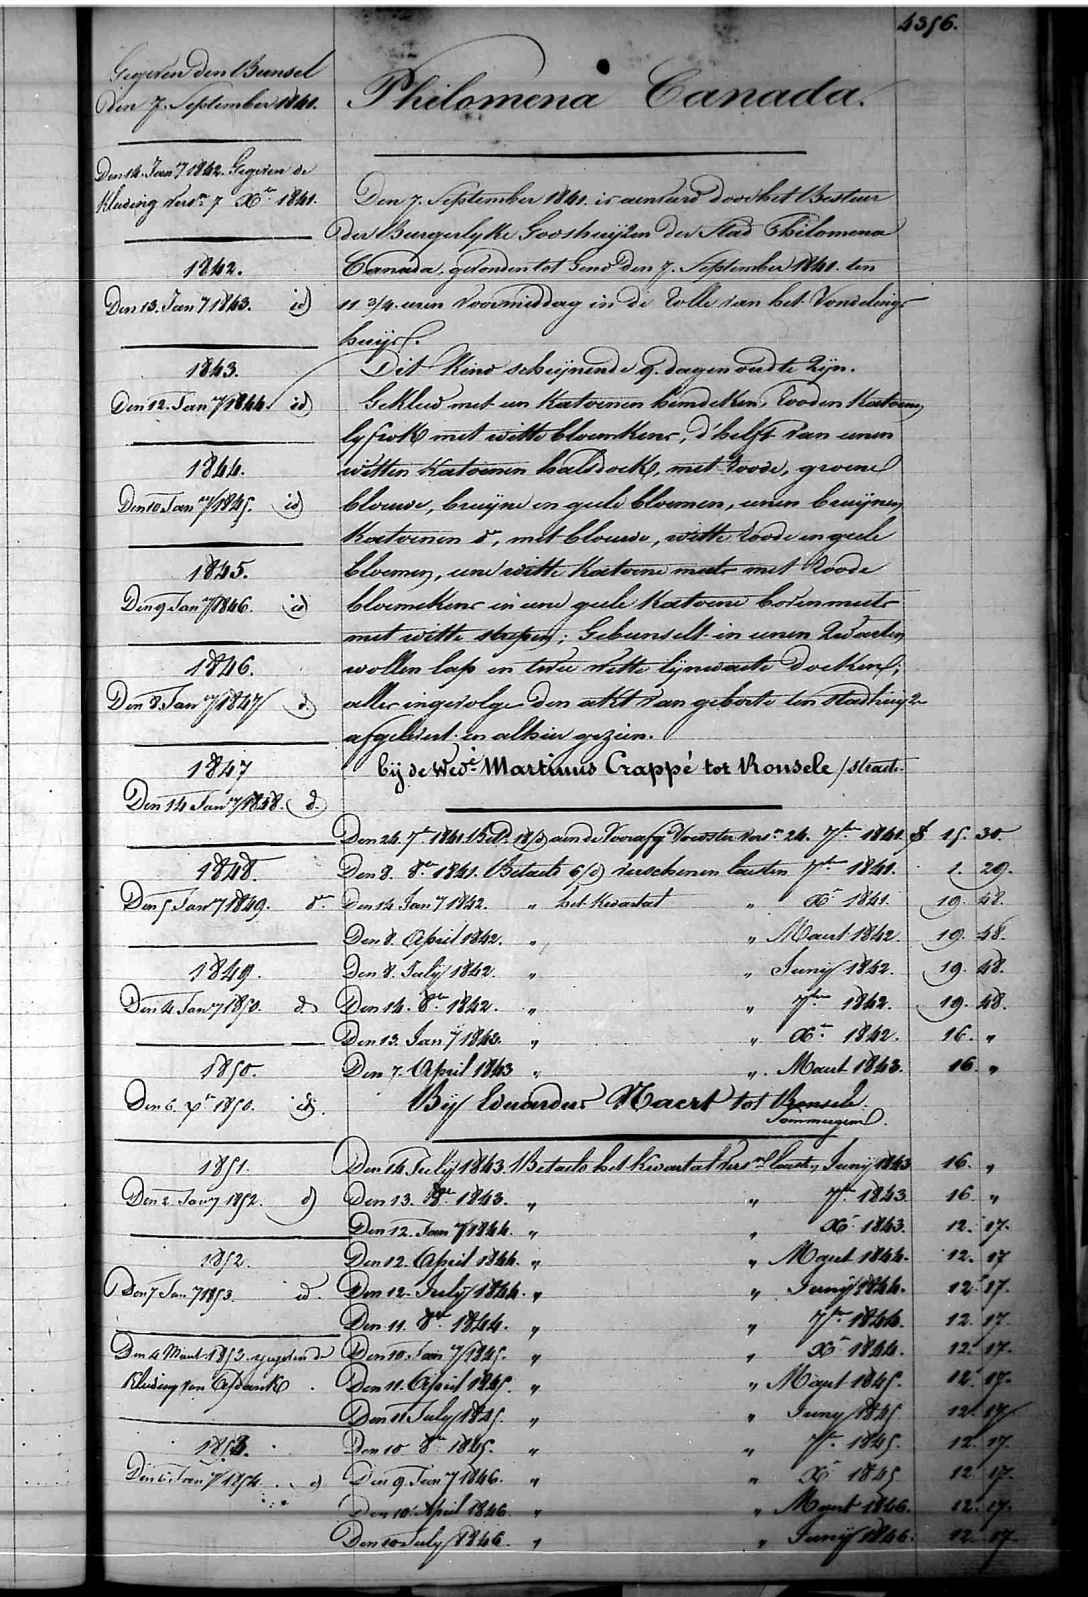 4356.
Gegeven den Bunsel
den 7. September 1841.
Philomena Canada.
Den 14. Jan^y 1842. Gegeven de
Kleeding vers^n 7 X^r 1841.
1842.
Den 13. Jan^y 1843. id
1843.
Den 12. Jan^y 1844. id
1844.
Den 10 Jan^y 1845. id
1845.
Den 9 Jan^y 1846. id
1846.
Den 8 Jan^y 1847 d
1847
Den 14 Jan^y 1848. d.
1848.
Den 5 Jan^y 1849. d^o
1849.
Den 4 Jan^y 1850. d
1850.
Den 6. x^r 1850. id.
1851.
Den 2 Jan^y 1852. d
1852.
Den 7 Jan^y 1853. id.
Den 4 Maert 1853 gegeven de
Kleeding van
1853.
Den 6 Jan^y 1854 . d
Den 7. September 1841. is aenveird door het Bestuer
der Burgerlyke Godshuijzen der Stad Philomena
Canada, gevonden tot Gend den 7. September 1841. ten
11 3/4 uren voormiddag in de Rolle van het Vondeling-
huijs.
Dit Kind scheijnende 9. dagen oud te Zyn.
Gekleed met een Katoenen hemdeken, Rooden Katoenen
lyfrok met witte bloemkens, d'helft van eenen
witten Katoenen halsdoek, met Roode, groene
blouwe, bruijne en geele bloemen, eenen bruijnen
Katoenen d^o, met blouwe, witte Roode en geele
bloemen, eene witte Katoene muts met Roode
bloemekens en eene geele Katoene bovenmuts
met witte strepen; Gebunselt in eenen Zwarten
wollen lap en twee witte lijnwaete doeken;
alles ingevolge den akt van geboorte ten stadhuyze
afgelevert en alhier gezien.
bij de Wed^e Martinus Crappé tot Ronsele / straete
Den 24 7^r 1841. Bet^d 18/ aen de Vooraf^g Voedster vers^n 24. 7^br 1841. f 15. 30.
Den 8. 8^r 1841. Betaeld 6/ verschenen laesten 7^br 1841. 1. 29.
Den 14 Jan^y 1842. " het Kwartael " X^r 1841. 19. 48.
Den 8. April 1842. " " Maert 1842. 19. 48.
Den 8. July 1842. " " Juny 1842. 19. 48.
Den 14. 8^r 1842. " " 7^bre 1842. 19. 48.
Den 13. Jan^y 1843. " " X^r 1842. 16. "
Den 7. April 1843 " " Maert 1843. 16 "
Bij Eduardus Naert tot Ronsele.
Sommergem.
Den 14 July 1843. Betaeld het Kwartael vers^n laesten Juny 1843 16. "
Den 13. 8^r 1843. " " 7^br 1843. 16 "
Den 12. Jan^y 1844. " " X^r 1843. 12. 17.
Den 12. April 1844. " " Maert 1844. 12. 17
Den 12. July 1844. " " Juny 1844. 12. 17.
Den 11. 8^r 1844. " " 7^br 1844. 12. 17.
Den 10. Jan^y 1845. " " X^r 1844. 12. 17.
Den 11. April 1845. " " Maert 1845. 12. 17.
Den 11 July 1845. " " Juny 1845 12. 17
Den 10 8^r 1845. " " 7^br 1845. 12. 17.
Den 9. Jan^y 1846. " " X^r 1845 12. 17.
Den 10 April 1846. " " Maert 1846. 12. 17.
Den 10 July 1846. " " Juny 1846. 12. 17.